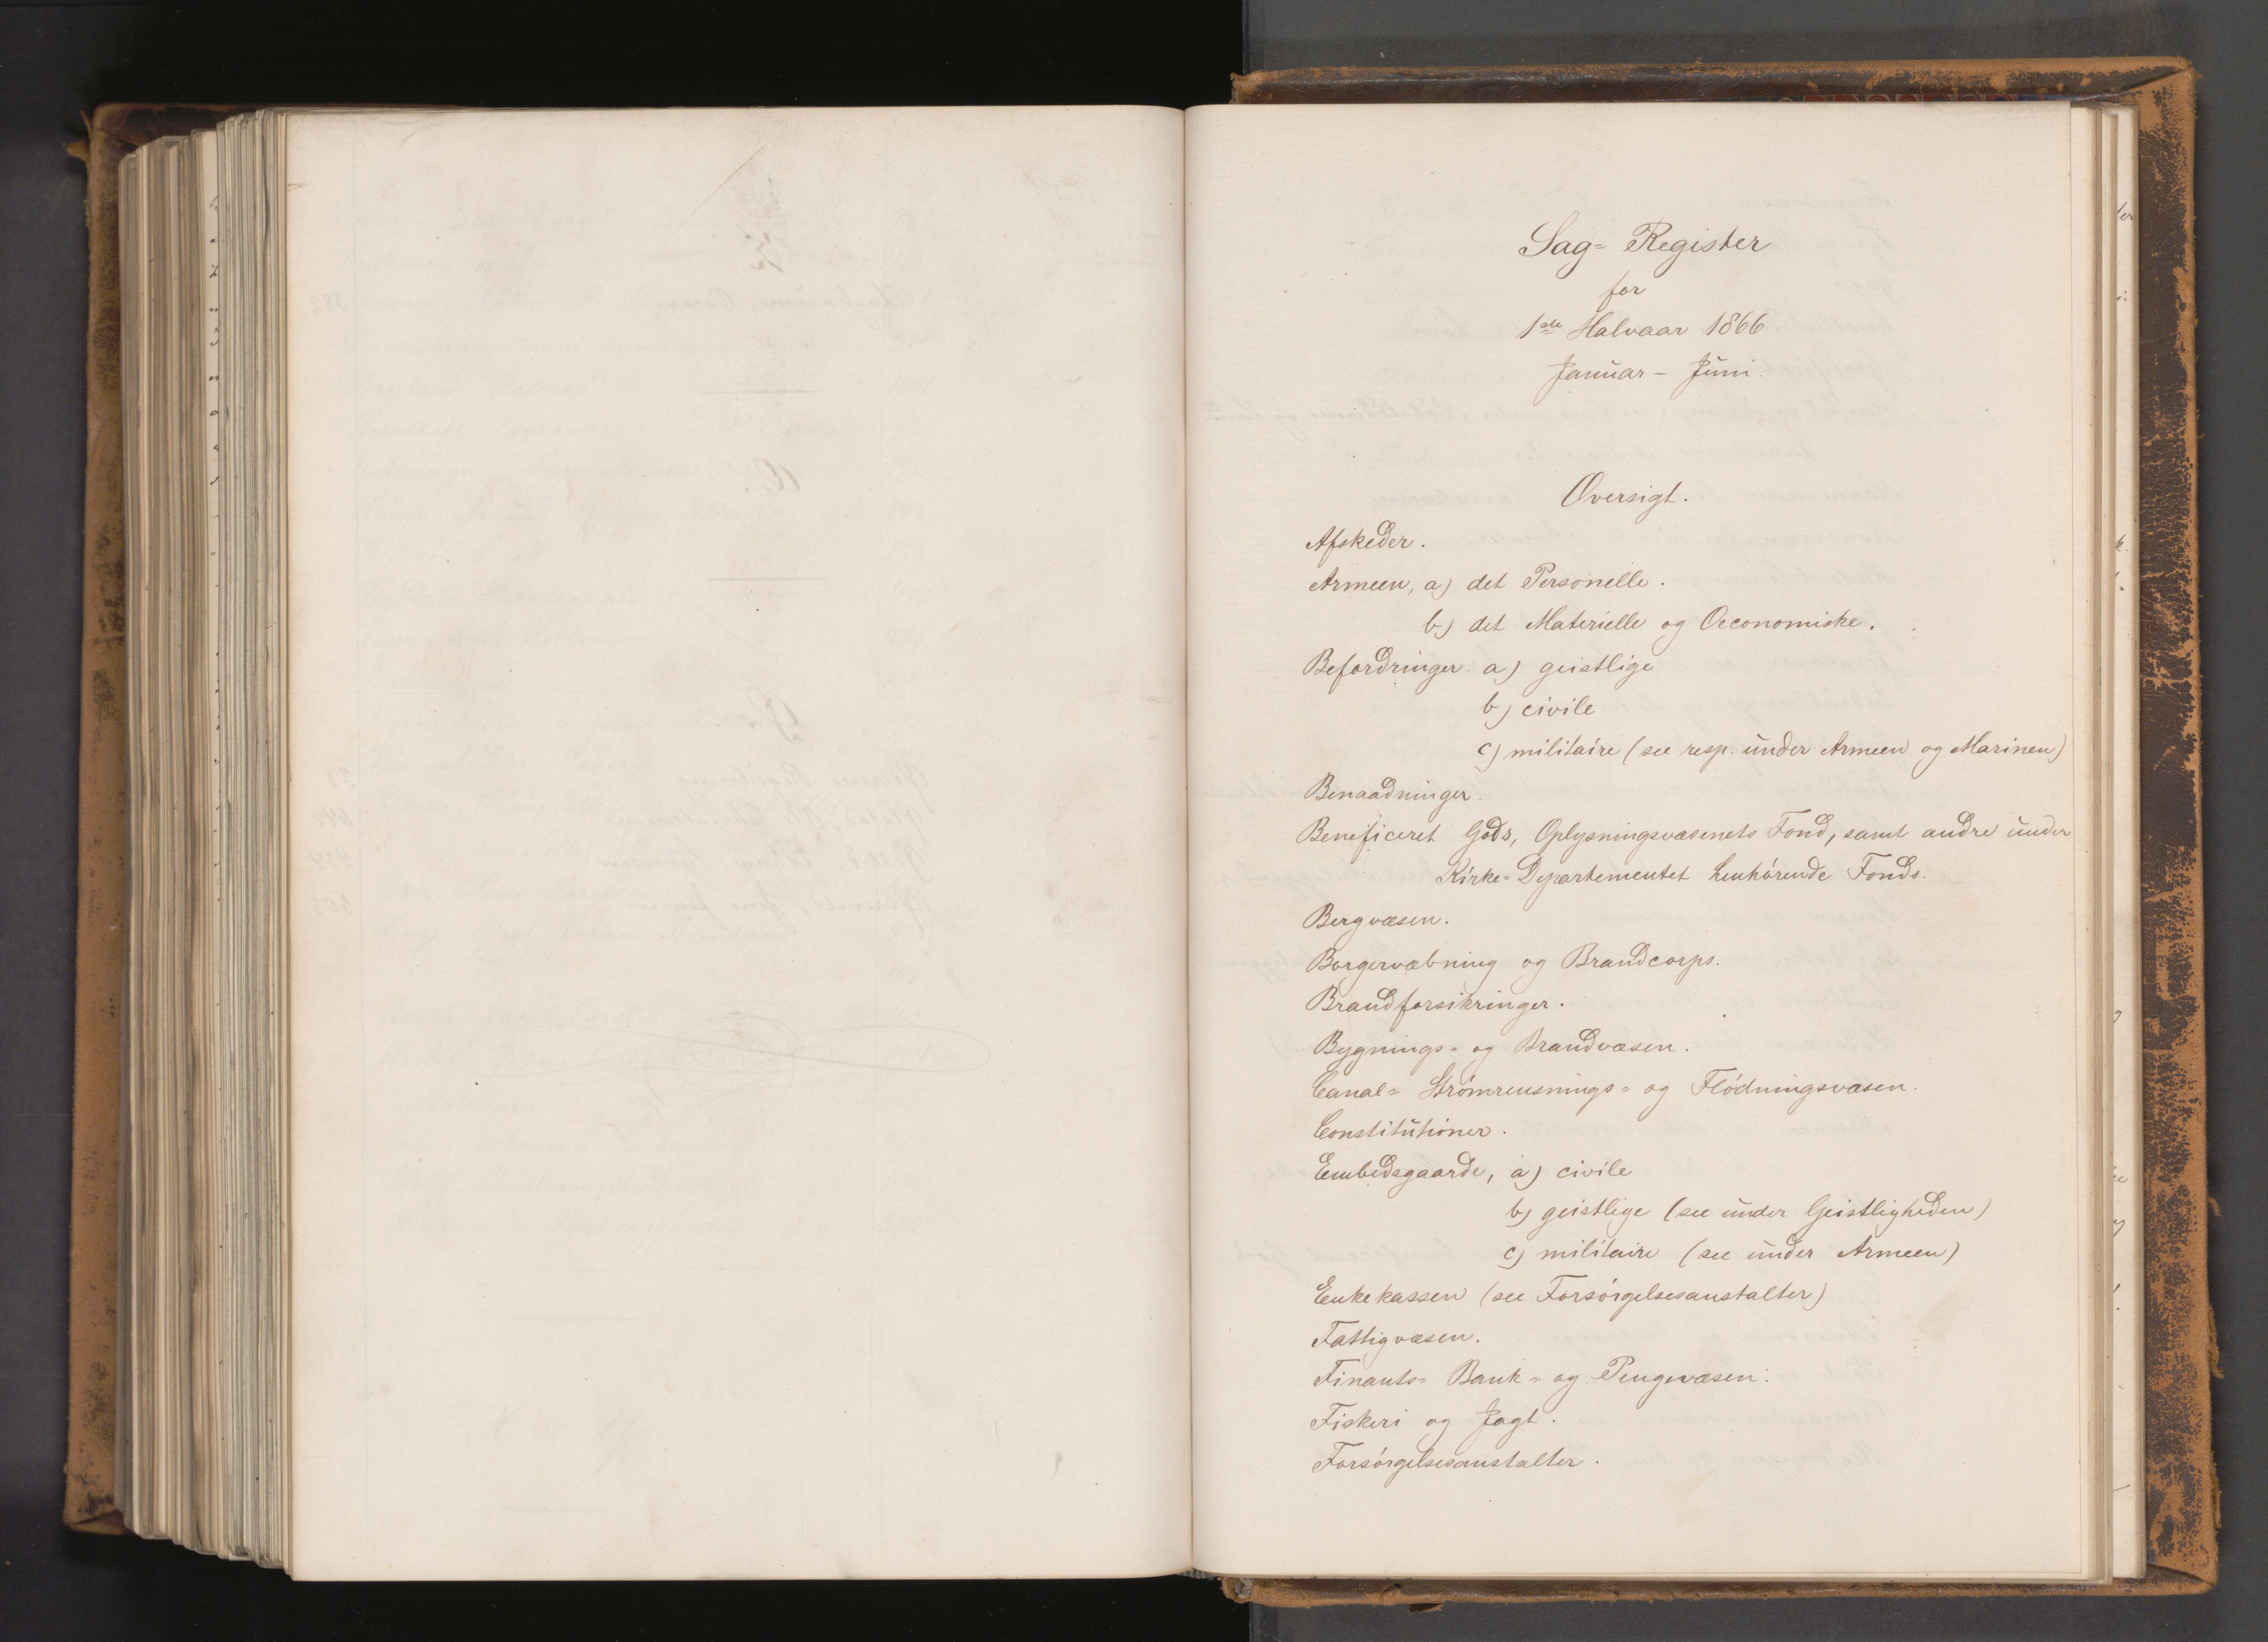 Sag- Register
for
1ste Halvaar 1866
Januar - Juni.
Oversigt.
Afskeder.
Armeen, a) det Personelle.
b) det Materielle og Oeconomiske.
Befordringer a) geistlige
b) civile
c) militaire (see resp. under Armeen og Marinen)
Benaadninger.
Beneficeret Gods, Oplysningsvæsenets Fond, samt andre under
Kirke-Departementet henhørende Fonds.
Bergvæsen.
Borgervæbning og Brandcorps.
Brandforsikringer.
Bygnings- og Brandvæsen.
Canal- Strømrensnings- og Flødningsvæsen.
Constitutioner.
Embedsgaarde, a) civile
b) geistlige (see under Geistligheden)
c) militaire (see under Armeen)
Enkekassen (see Forsørgelsesanstalter)
Fattigvæsen.
Finants- Bank- og Pengevæsen.
Fiskeri og Jagt.
Forsørgelsesanstalter.